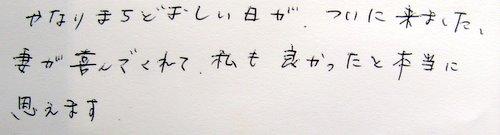 やなりまちどおしい日が、ついに来ました、
妻が喜んでくれて、私も良かったと本当に
思えます